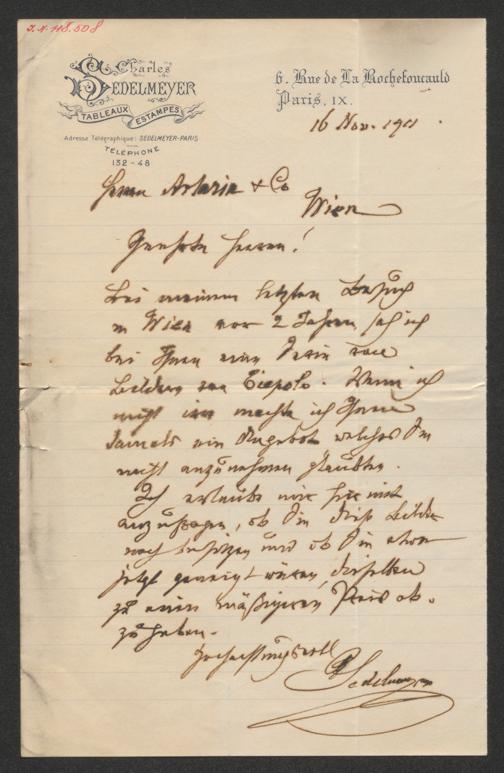 I.N. 118.508
Charles
SEDELMEYER
TABLEAUX ESTAMPES
Adresse Télégraphique: SEDELMEYER-PARIS
TÉLÉPHONE
132-48
6, Rue de La Rochefoucauld
Paris, IX.
16 Nov. 1911
Herren Artaria & Co
Wien
Geehrte Herren!
Bei meinem letzten Besuch
in Wien vor 2 Jahren sah ich
bei Ihnen eine Serie von
Bildern von Tiepolo. Wenn ich
nicht irre machte ich Ihnen
damals ein Angebot welches Sie
nicht anzunehmen glaubten.
Ich erlaube mir hiermit
anzufragen, ob Sie diese Bilder
noch besitzen und ob Sie etwa
jetzt geneigt wären, dieselben
zu einem mäßigeren Preis ab-
zugeben.
Hochachtungsvoll
Sedelmeyer